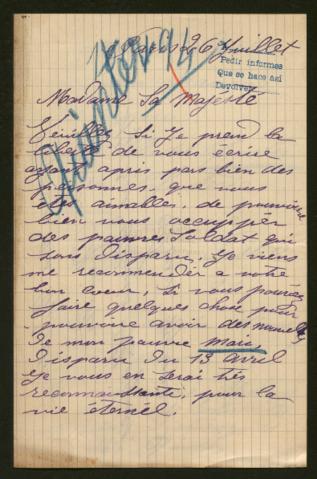 Paris 26 Juillet
Pedir informes
Que se hace así
Devolver
Madame Sa Majesté
Veuillez si Je prend la
de vous écrire
ayant apris par bien des
personnes, que vous
êtes aimables, de
bien vous occuppér
des pauvres Soldat qui
sons disparu, Je viens
me recommender a votre
bon cœur, si vous pouviez
faire quelques chose pour
pouvoire avoir des nouvelles
de mon pauvre mari,
Disparu du 13 avril
Je vous en serai très
reconnaissante, pour la
vie éternél.